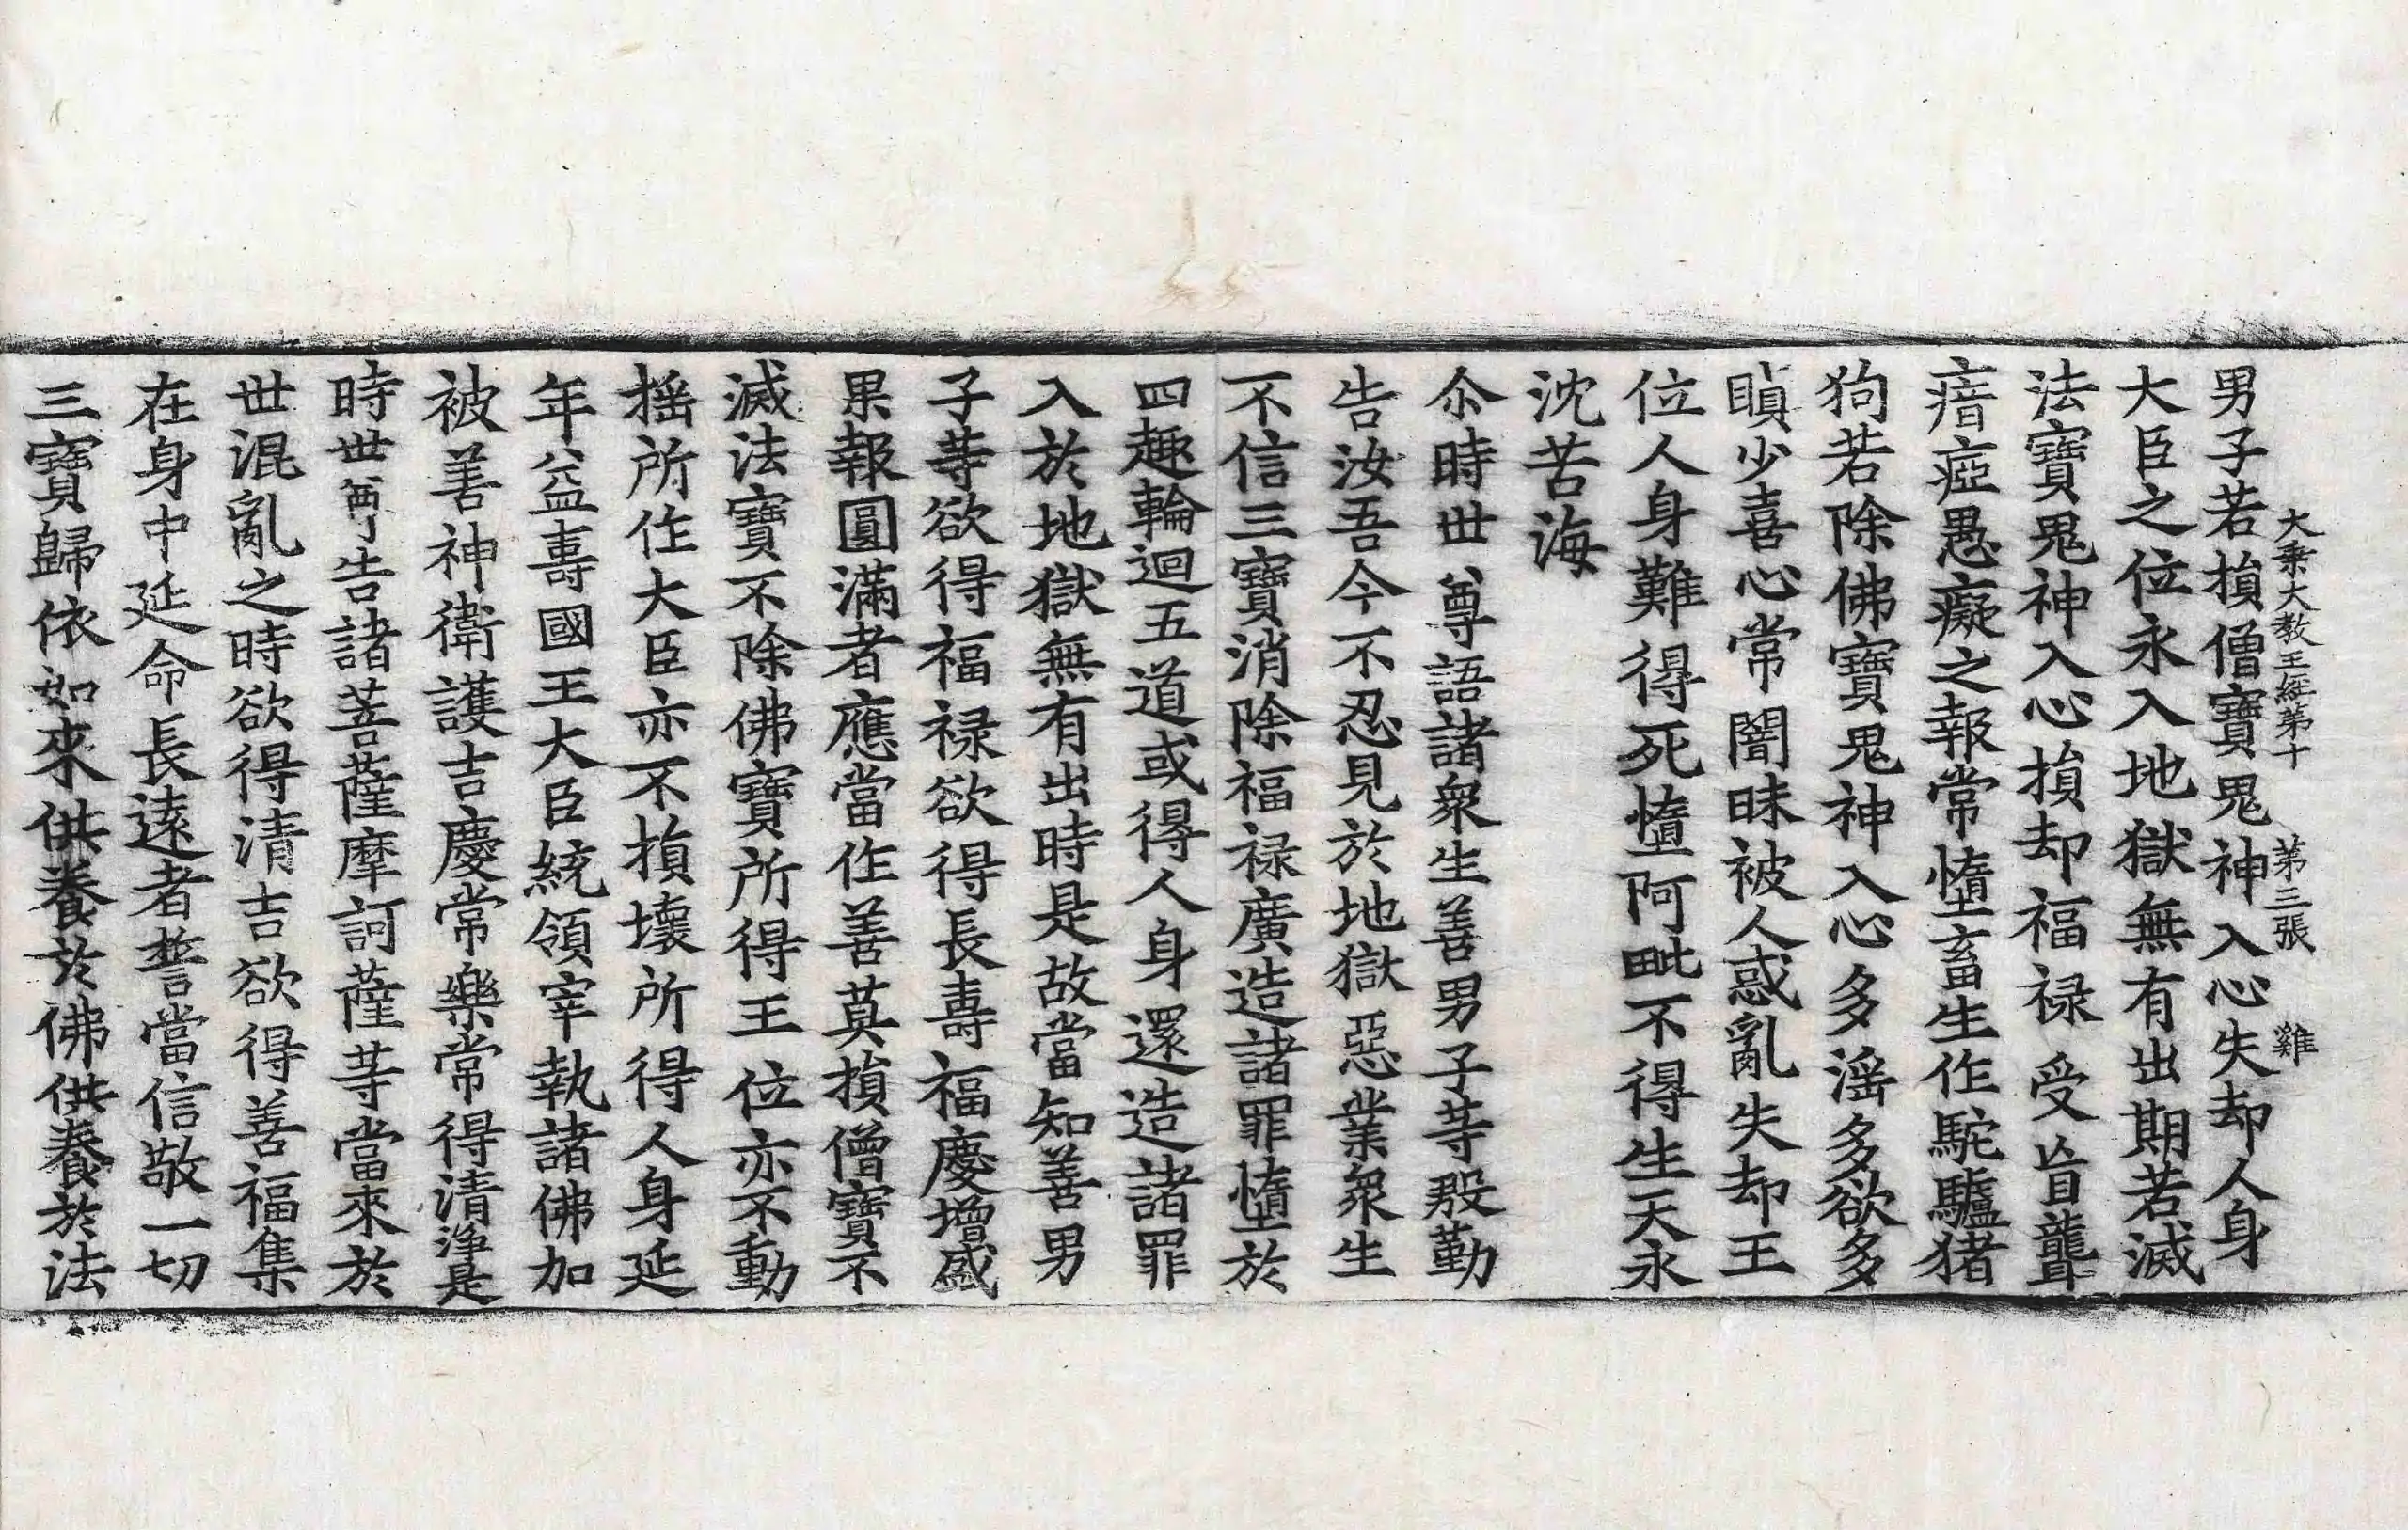 大乘大教王經第十　第三張　雞
男子若損僧寶鬼神入心失却人身
大臣之位永入地獄無有出期若滅
法寶鬼神入心損却福禄受盲聾
瘖瘂愚癡之報常墮畜生作駝驢猪
狗若除佛寶鬼神入心多滛多欲多
瞋少喜心常闇昧被人惑亂失却王
位人身難得死墮阿毗不得生天永
沈苦海
尒時世尊語諸衆生善男子䓁殷勤
告汝吾今不忍見於地獄惡業衆生
不信三寶消除福禄廣造諸罪墮於
四趣輪迴五道或得人身還造諸罪
入於地獄無有出時是故當知善男
子䓁欲得福禄欲得長壽福慶增盛
果報圓滿者應當作善莫損僧寶不
滅法寶不除佛寶所得王位亦不動
揺所作大臣亦不損壞所得人身延
年益壽國王大臣統領宰執諸佛加
被善神衛護吉慶常樂常得清淨是
時世尊告諸菩薩摩訶薩䓁當來於
世混亂之時欲得清吉欲得善福集
在身中延命長遠者誓當信敬一切
三寶歸依如來供養於佛供養於法